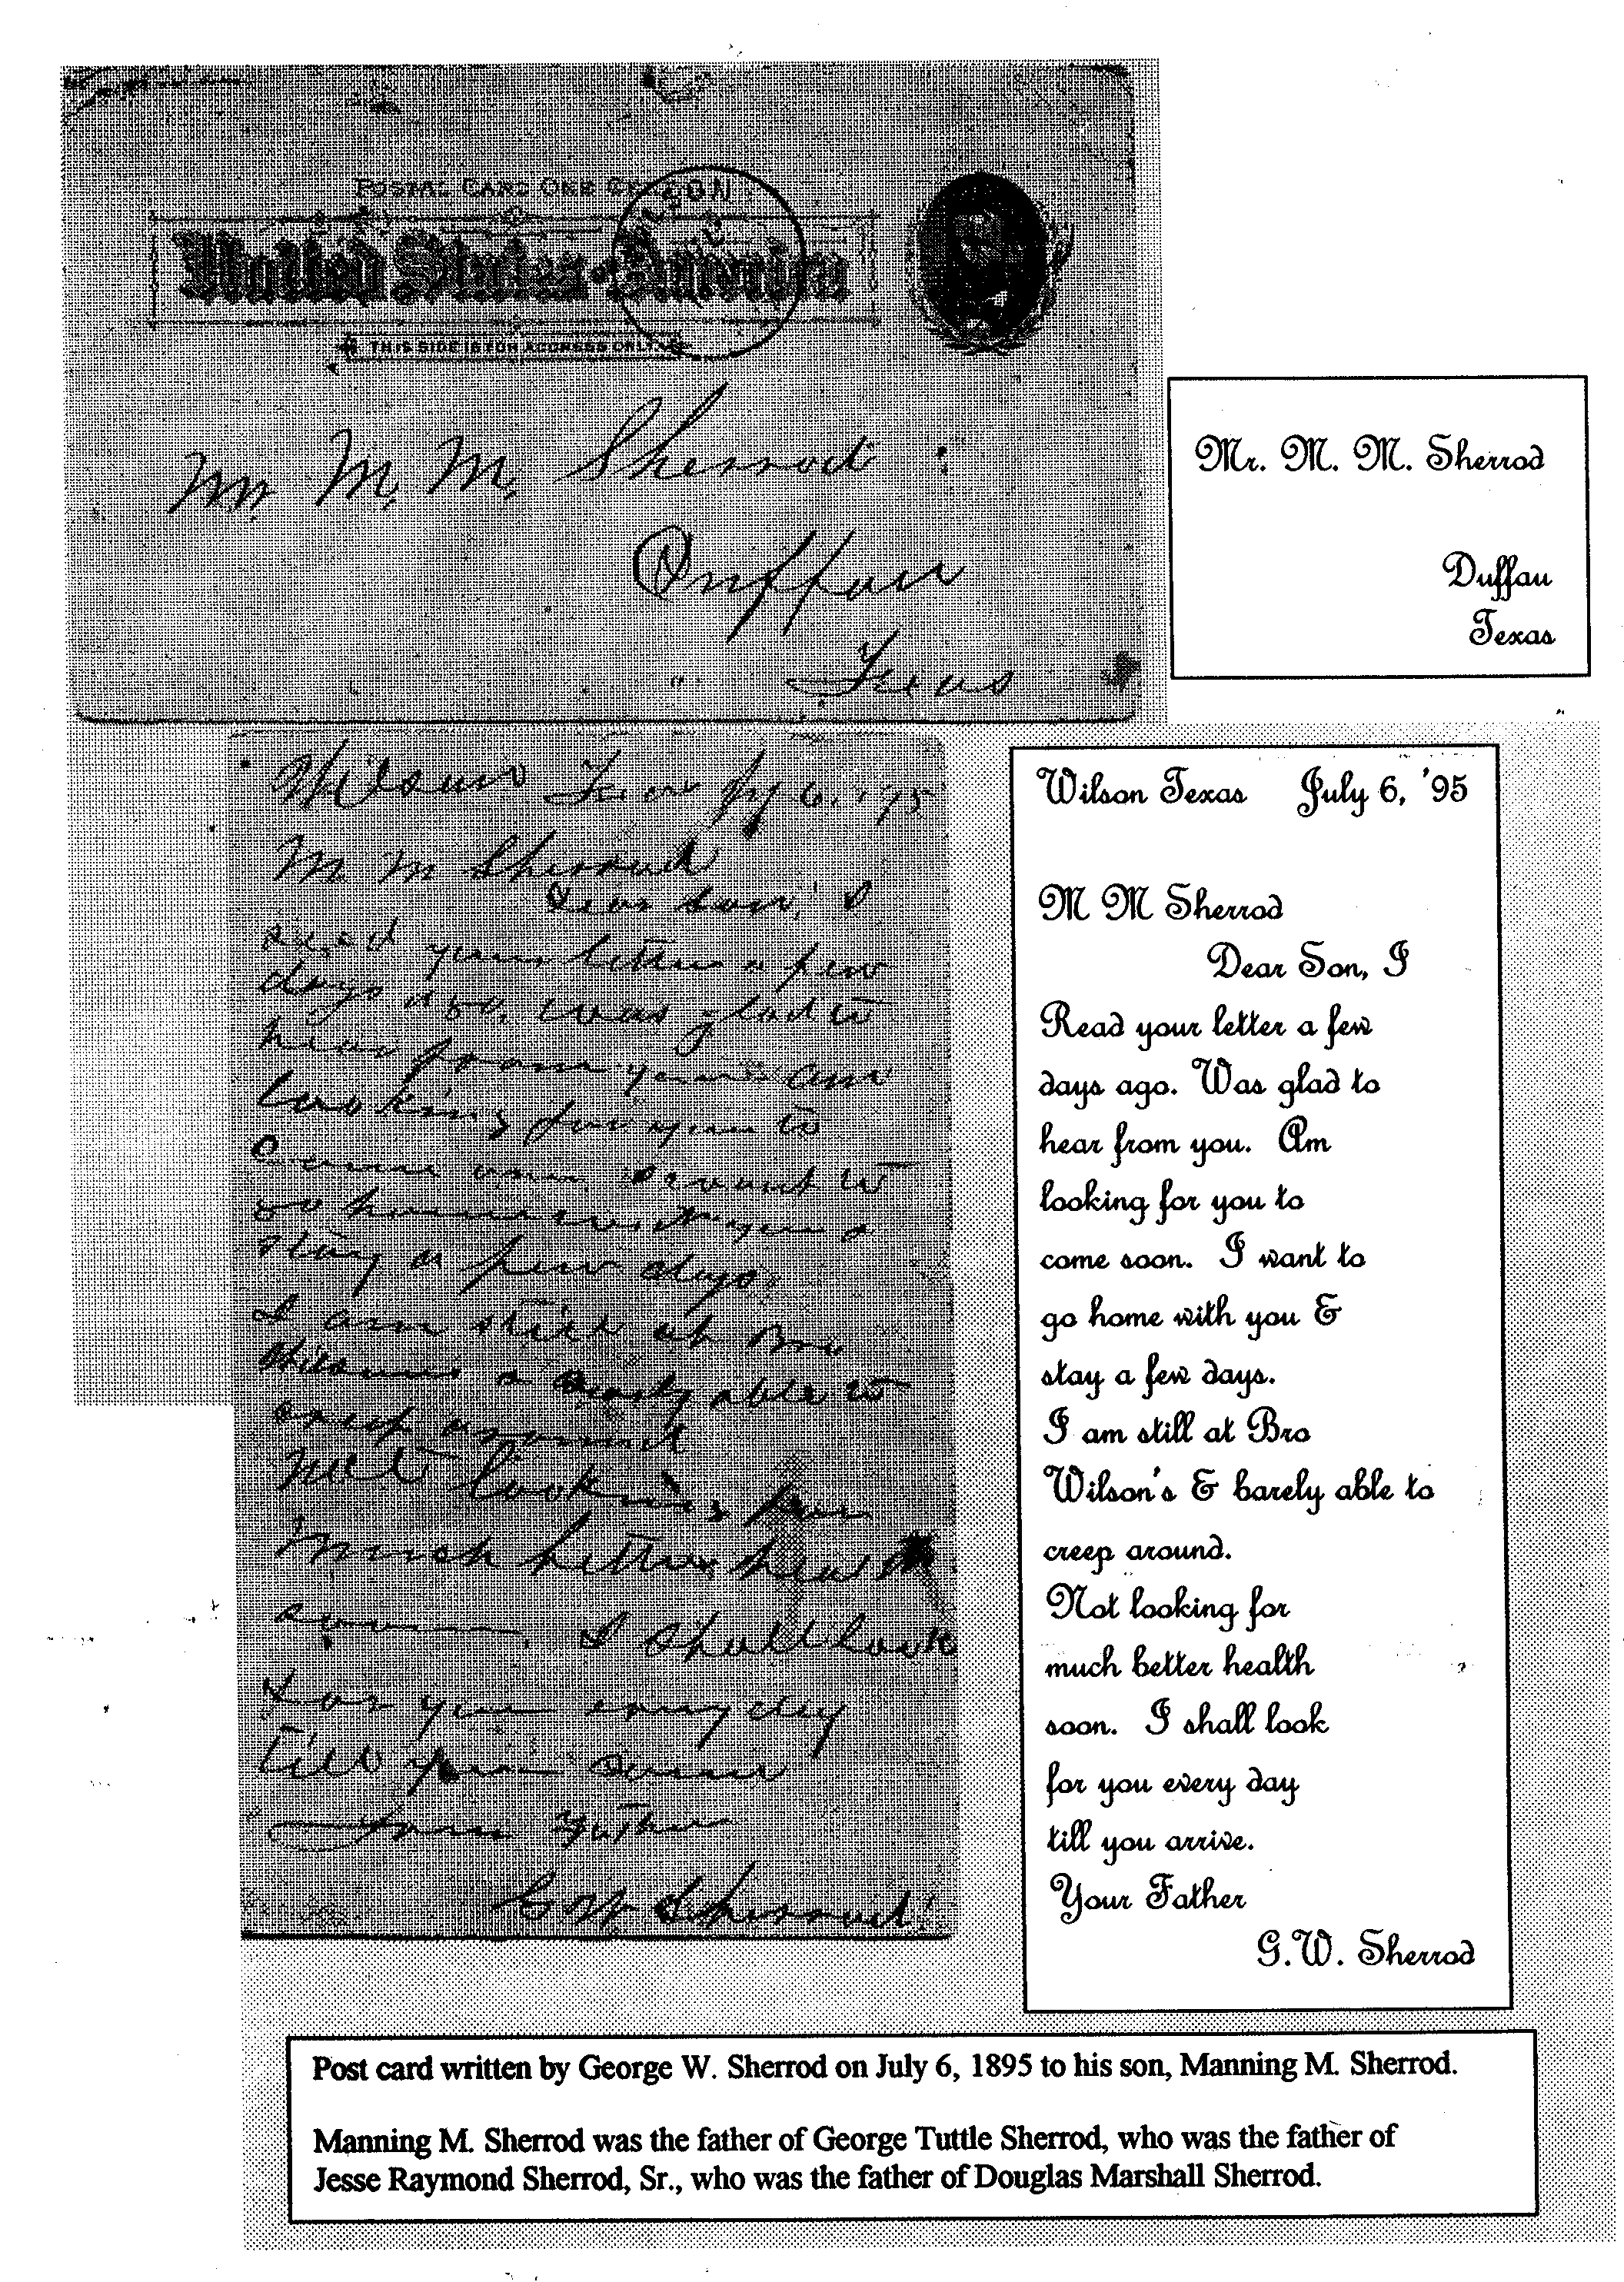 POSTAL CARD ONE CENT
United States of America
THIS SIDE IS FOR ADDRESS ONLY
Mr. M. M. Sherrod
Duffau
Texas
Mr. M. M. Sherrod
Duffau
Texas
Wilson Texas July 6, '95
M. M Sherrod
Dear Son, I
rec'd your letter a few
days ago, was glad to
hear from you am
looking for you to
come soon I want to
go home with you &
stay a few days.
I am still at Bro
Wilsons & barely able to
creep around
not looking for
much better health
soon. I shall look
for you every day
till you
Your Father
G W Sherrod
Wilson Texas July 6, '95
M M Sherrod
Dear Son, I
Read your letter a few
days ago. Was glad to
hear from you. Am
looking for you to
come soon. I want to
go home with you &
stay a few days.
I am still at Bro
Wilson's & barely able to
creep around.
Not looking for
much better health
soon. I shall look
for you every day
till you arrive.
Your Father
G.W. Sherrod
Post card written by George W. Sherrod on July 6, 1895 to his son, Manning M. Sherrod.
Manning M. Sherrod was the father of George Tuttle Sherrod, who was the father of
Jesse Raymond Sherrod, Sr., who was the father of Douglas Marshall Sherrod.